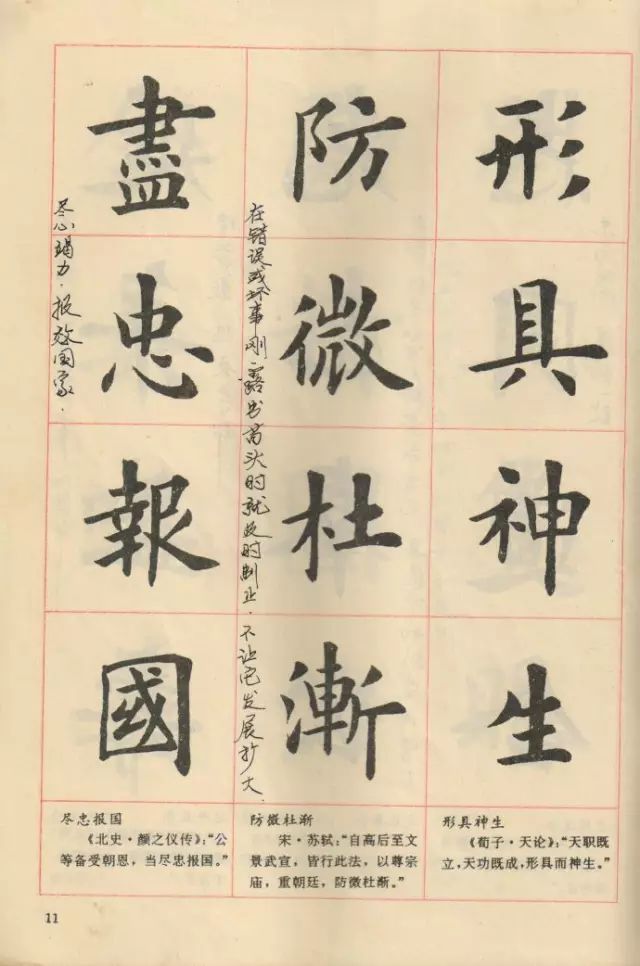 形具神生
防微杜漸
在错误或坏事刚露出苗头时就及时制止.不让它发展扩大.
盡忠報國
尽心竭力.报效国家.
形具神生
《荀子·天论》:“天职既
立,天功既成,形具而神生。”
防微杜渐
宋·苏轼:“自高后至文
景武宣,皆行此法,以尊宗
庙,重朝廷,防微杜渐。”
尽忠报国
《北史·颜之仪传》:“公
等备受朝恩,当尽忠报国。”
11